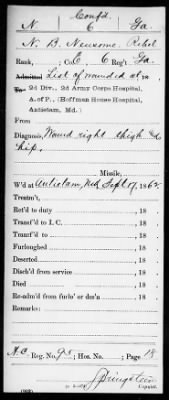 Confd.
N 6 Ga.
N. B. Newsome. Rebel
Rank, ; Co. E, 6 Reg't Ga.
Admitted List of wounded at , 18
To 2d Div., 2d Army Corps Hospital,
A. of P., (Hoffman House Hospital,
Antietam, Md.)
From
Diagnosis, Wound right thigh &
hip,
Missile,
W'd at Antietam, Md, Sept 17, 1862
Treatm't,
Ret'd to duty , 18
Transf'd to I. C. , 18
Transf'd to , 18
Furloughed , 18
Deserted , 18
Disch'd from service , 18
Died , 18
Re-adm'd from furlo' or des'n , 18
Remarks:
A.C. Reg. No. 95; Hos. No. ; Page 18
Copyist.